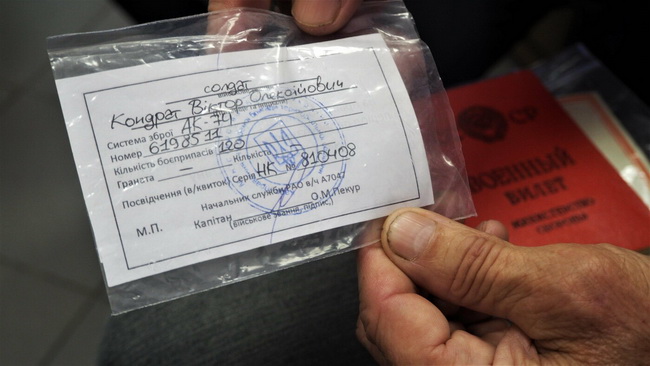 солдат
Кондрат Віктор Олксійович
Система зброї АК-74
Номер 6198511
Кількість боєприпасів 120 Кількість
Граната –
Посвідчення (в/квиток) Серія НК № 810408
Начальник служби РАО в/ч А704
М.П. Капітан О.М.Пекур
(військове звання, підпис)
СР
ВОЕННЫЙ
БИЛЕТ